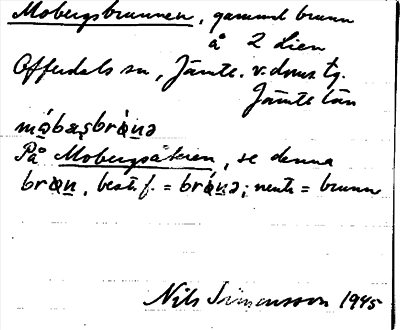 Mobergsbrunnen, gammal brunn
å 2 Lien
Offerdals sn, Jämtl. v. dnus tg.
Jämtlan
mó̱bæșbrò̱nə
På Mobergsåkern, se denna
bròn, best. f. = brónə; neutr = brunn
Nils Simonsson 1945